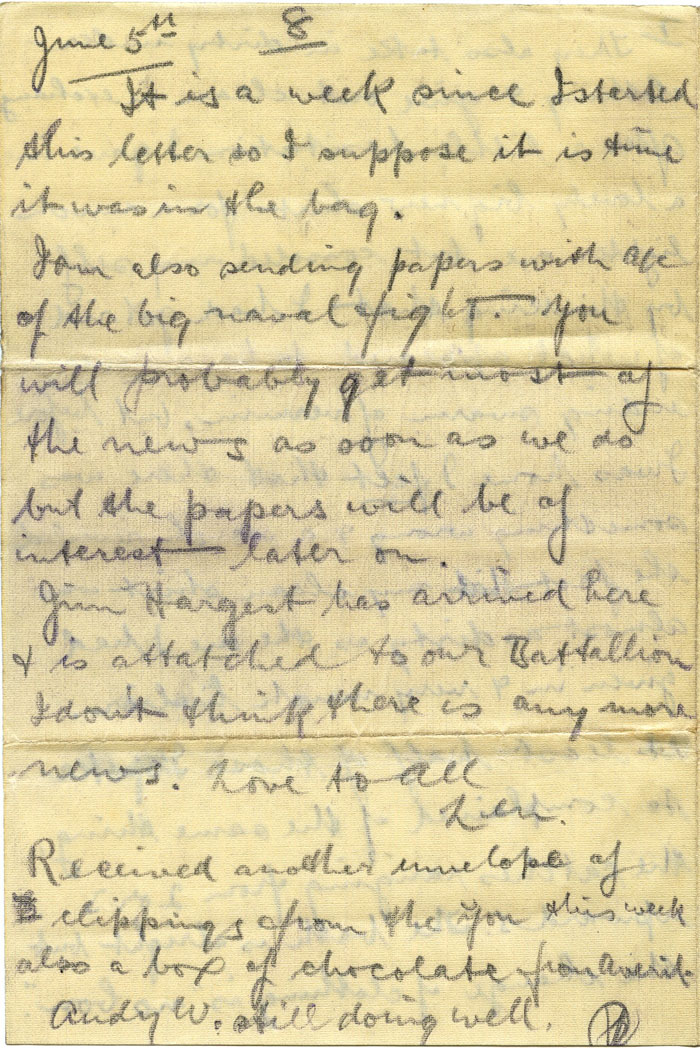 June 5th 8
It is a week since I started
this letter so I suppose it is time
it was in the bag.
I am also sending papers with a/c
of the big naval fight. You
will probably get most of
the news as soon as we do
but the papers will be of
interest later on.
Jim Hargest has arrived here
& is attatched to our Battallion
I don't think there is any more
news. Love to all
Len.
Received another envelope of
clippings from the you this week
also a box of chocolate from
Andy W. still doing well.